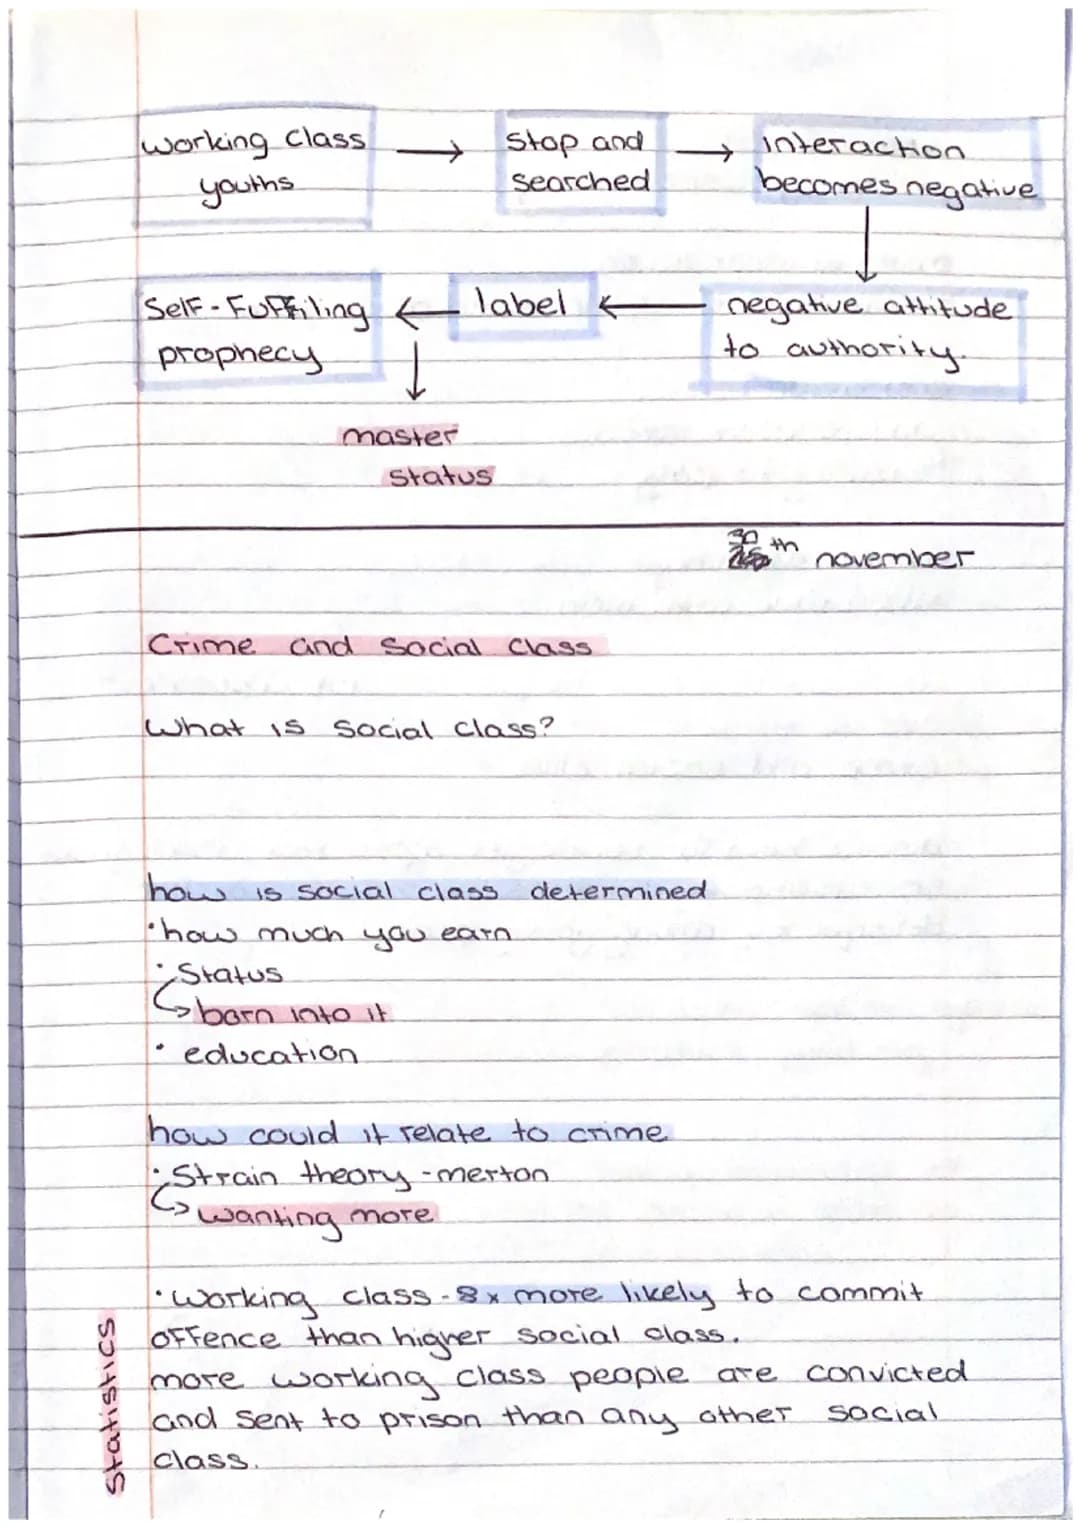 working class → stop and → interaction
youths searched becomes negative
↓
self-fulfiling ← label ← negative attitude
prophecy ↓ to authority.
master
status
30th november
Crime and Social Class
What is social class?
how is social class determined
• how much you earn
• Status
↳ born into it
• education
how could it relate to crime
• Strain theory - merton
↳ wanting more
• working class - 8x more likely to commit
offence than higher social class.
more working class people are convicted
and sent to prison than any other social
class.
Statistics